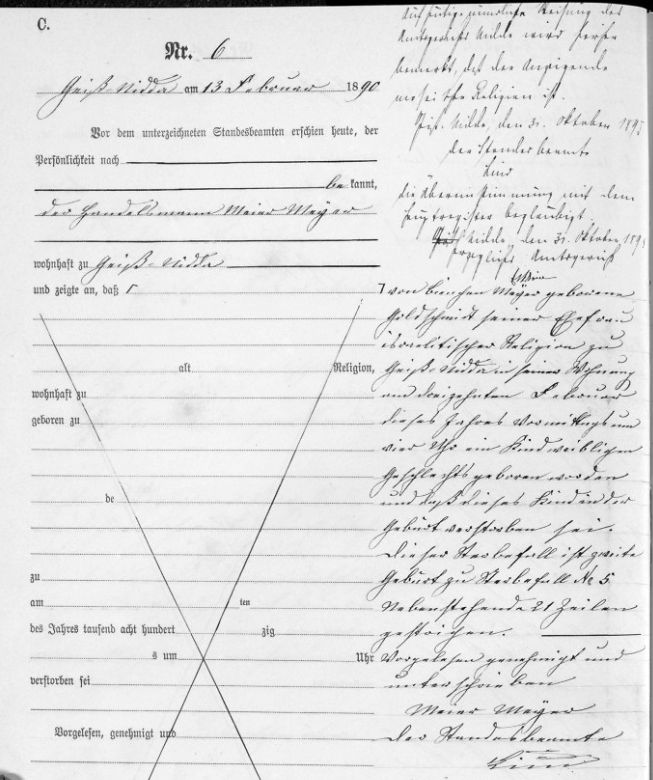 C.
Nr. 6
Geiß-Nidda am 13 Februar 1890
Vor dem unterzeichneten Standesbeamten erschien heute, der
Persönlichkeit nach
be kannt,
der Handelsmann Meier Meyer
wohnhaft zu Geiß-Nidda
und zeigte an, daß
alt Religion,
wohnhaft zu
geboren zu
de
zu
am ten
des Jahres tausend acht hundert zig
s um Uhr
verstorben sei
Vorgelesen, genehmigt und
Amtsgerichts Nidda wird hierher
bemerkt, daß der Anzeigende
Religion ist.
Nidda, den 31. Oktober 1895
der Standesbeamte
die Übereinstimmung mit dem
Hauptregister beglaubigt
Nidda, den 31. Oktober 1895
Amtsgericht
von Meyer geborene
Goldschmidt seiner Ehefrau
israelitischer Religion zu
Geiß-Nidda in seiner Wohnung
am dreizehnten Februar
dieses Jahres Vormittags um
vier Uhr ein Kind weiblichen
Geschlechts geboren worden
und daß dieses Kind in der
Geburt verstorben sei.
Dieser Sterbefall ist zweite
Geburt zu Sterbefall No 5
Nebenstehende 21 Zeilen
gestrichen.
Vorgelesen genehmigt und
unterschrieben
Meier Meyer
Der Standesbeamte